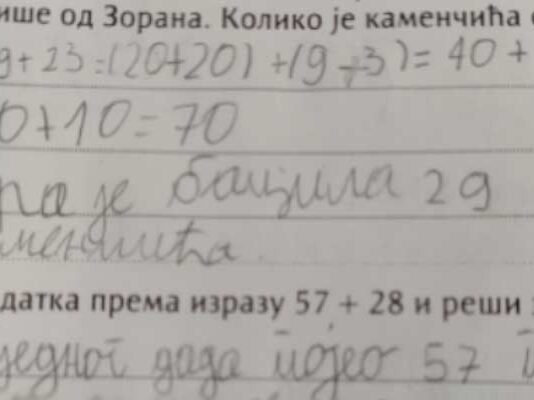 ише од Зорана. Колико је каменчића
9 + 23 = (20+20) + (9 + 3) = 40 +
0 + 10 = 70
ра је бацила 29
менчића
датка према изразу 57 + 28 и реши
једног дада појео 57